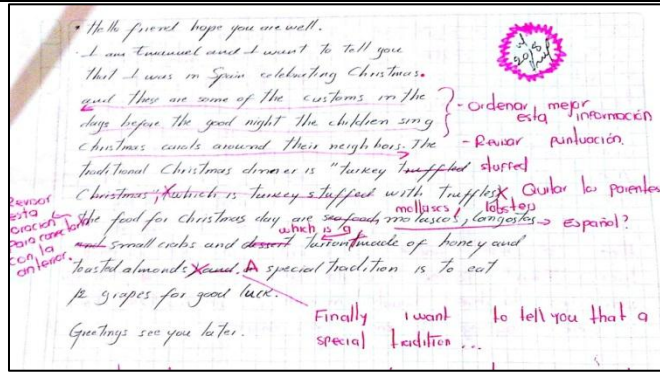 • Hello friend hope you are well.
. I am Emanuel and I want to tell you
that I was in Spain celebrating Christmas.
and they are some of the customs in the
days before the good night the children sing
Christmas carols around their neighbors. The
traditional Christmas dinner is "turkey truffled stuffed
Christmas, which is turkey stuffed with truffles
the food for christmas day are seafood, molascos, langostas
and small crabs and dessert made of honey and
toasted almonds and. A special tradition is to eat
12 grapes for good luck.
Greetings see you later.
- Ordenar mejor
esta información
- Revisar puntuación.
Quitar los parentes
mollascs, lobsters
español?
which is a
Revisar
esta
oración
para conectarla
con la
anterior.
Finally I want to tell you that a
special tradition ...